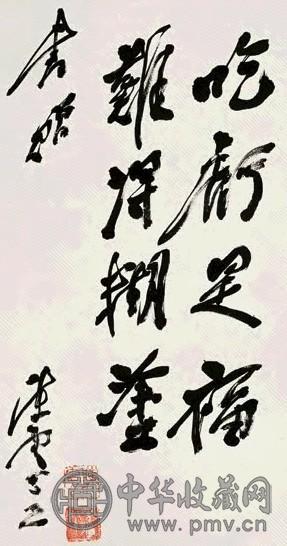 吃虧是福
難得糊塗
書贈
陳雲
中华收藏网
www.pmv.cn